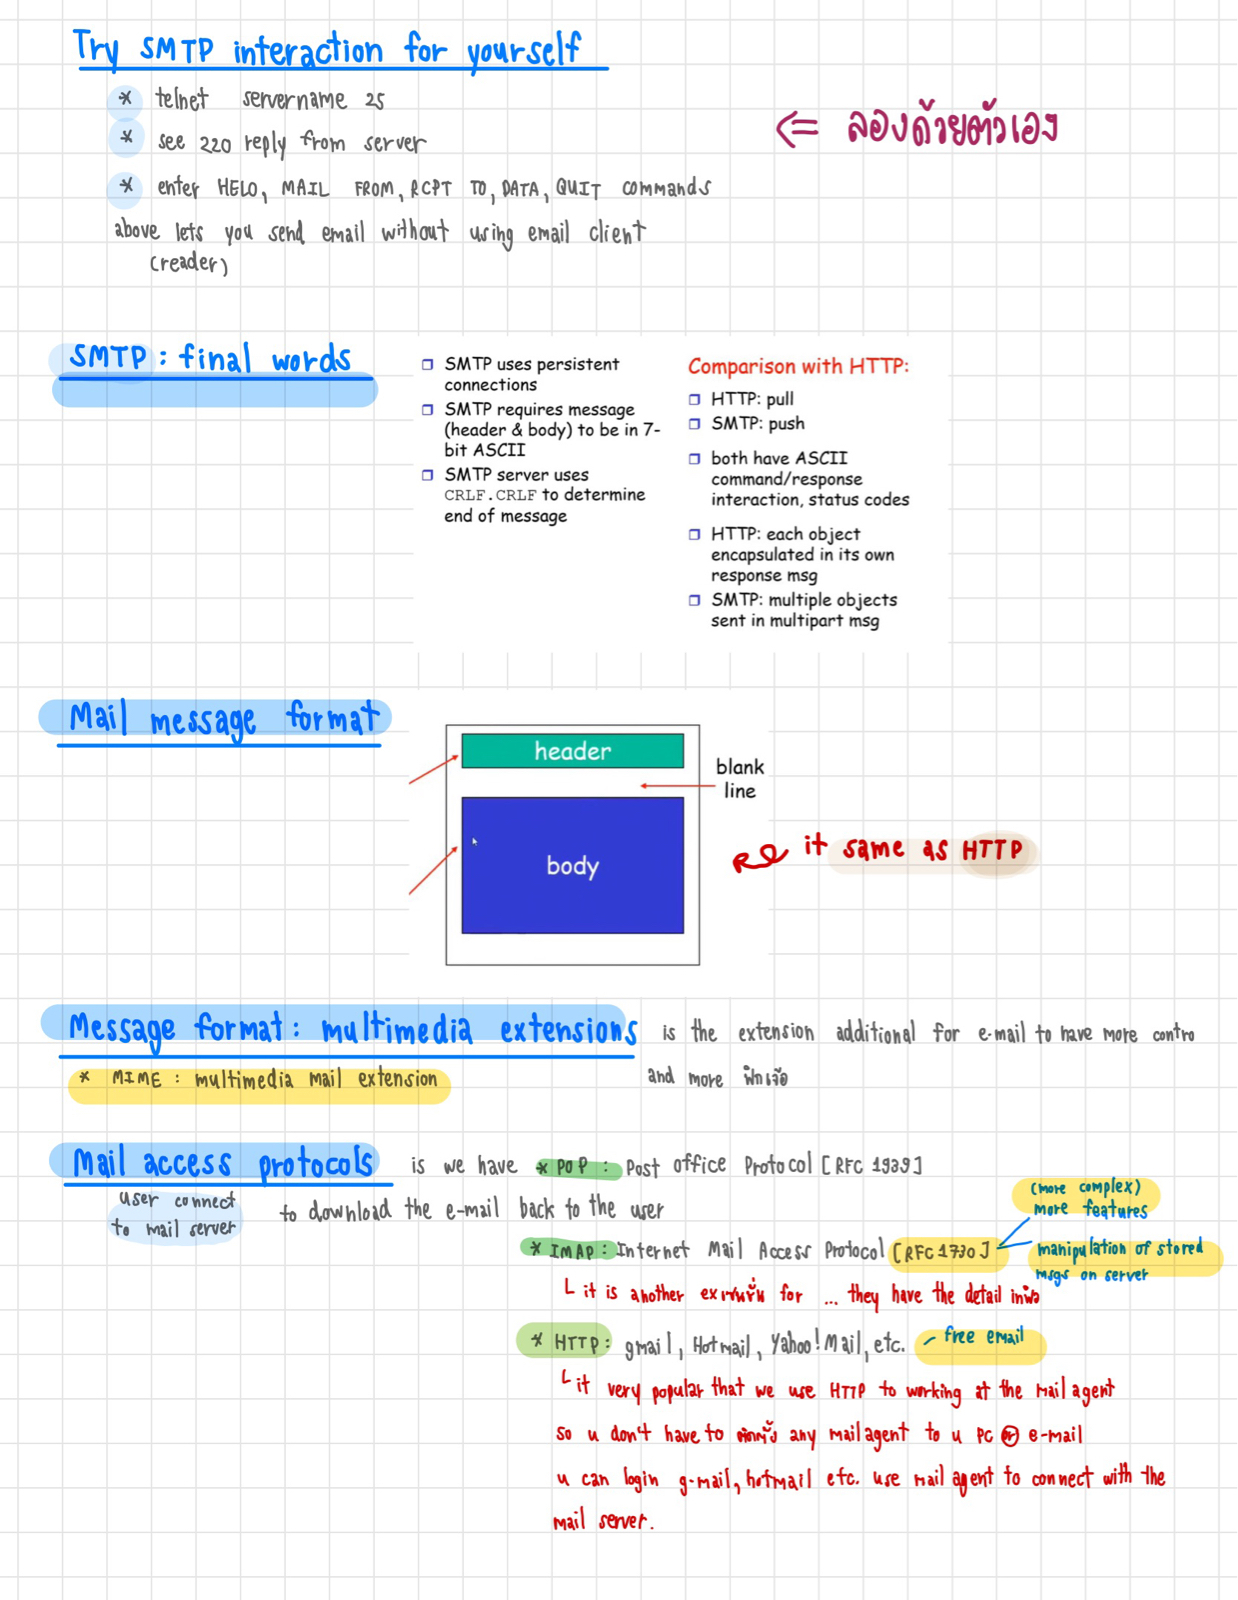 Try SMTP interaction for yourself
* telnet servername 25
* see 220 reply from server
* enter HELO, MAIL FROM, RCPT TO, DATA, QUIT commands
above lets you send email without using email client
(reader)
<= ลองด้วยตัวเอง
SMTP : final words
SMTP uses persistent
connections
SMTP requires message
(header & body) to be in 7-
bit ASCII
SMTP server uses
CRLF.CRLF to determine
end of message
Comparison with HTTP:
HTTP: pull
SMTP: push
both have ASCII
command/response
interaction, status codes
HTTP: each object
encapsulated in its own
response msg
SMTP: multiple objects
sent in multipart msg
Mail message format
header
blank
line
body
it same as HTTP
Message format: multimedia extensions is the extension additional for e-mail to have more contro
* MIME : multimedia mail extension
and more ฟีทเจอ
Mail access protocols is we have * POP : Post office Protocol [RFC 1939]
user connect
to mail server
to download the e-mail back to the user
(more complex)
more features
* IMAP: Internet Mail Access Protocol [RFC 1730]
manipulation of stored
msgs on server
it is another for ... they have the detail
* HTTP: gmail, Hotmail, Yahoo! Mail, etc. - free email
it very popular that we use HTTP to working at the mail agent
so u don't have to ติดตั้ง any mail agent to u PC or e-mail
u can login g-mail, hotmail etc. use mail agent to connect with the
mail server.